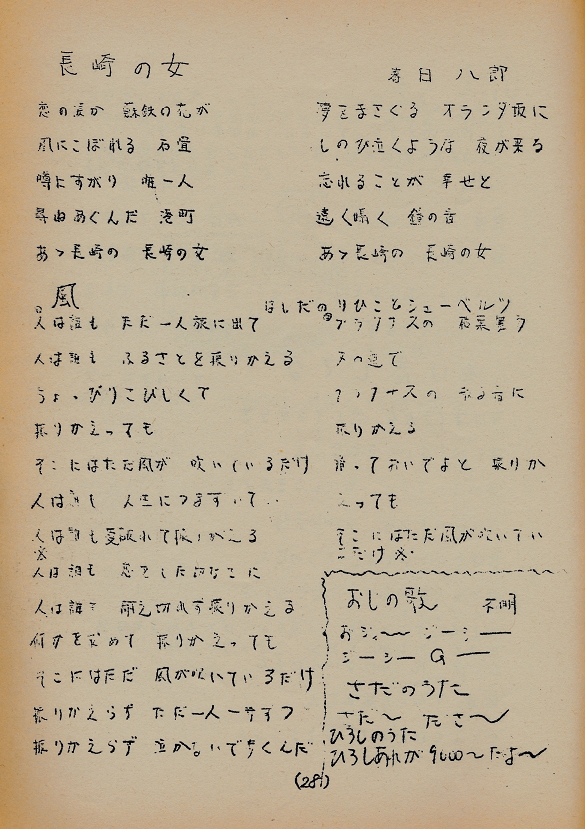 長崎の女
春日 八郎
恋の涙か 蘇鉄の花が
風にこぼれる 石畳
噂にすがり 唯一人
尋ねあぐんだ 港町
あゝ長崎の 長崎の女
夢をまさぐる オランダ坂に
しのび泣くような 夜が来る
忘れることが 幸せと
遠く囁く 鐘の音
あゝ長崎の 長崎の女
風
はしだのりひことシューベルツ
人は誰も ただ一人旅に出て
人は誰も ふるさとを振りかえる
ちょっぴりさびしくて
振りかえっても
そこにはただ風が 吹いているだけ
人は誰も 人生につまずいて
人は誰も 夢破れて振りかえる
※
人は誰も 恋をした
人は誰も 耐え切れず振りかえる
何かを求めて 振りかえっても
そこにはただ 風が吹いているだけ
振りかえらず ただ一人一歩ずつ
振りかえらず 泣かないで歩くんだ
プラタナスの 枯葉舞う
冬の道で
プラタナスの 散る音に
振りかえる
帰っておいでよと 振りか
えっても
そこにはただ風が吹いてい
るだけ ※
おじの歌 不明
おジィ〜 ジーシー
ジーシー G ー
さだのうた
さだ〜 ださ〜
ひろしのうた
ひろしあれが 9000〜だよ〜
(281)